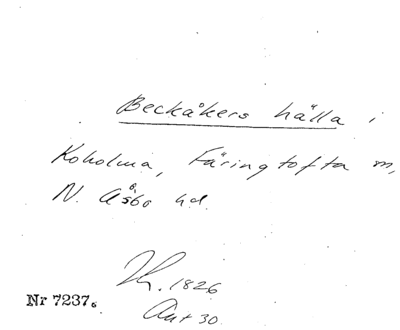 Beckåkers hälla i
Koholma, Färingtofta m,
N. Åsbo hd.
1826
Nr 7237.
Akt 30